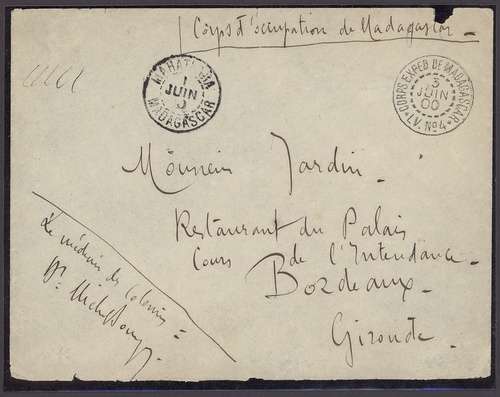 Corps d'occupation de Madagascar
MAHATSARA
1
JUIN
MADAGASCAR
CORPS EXPED. DE MADAGASCAR
3
JUIN
00
L.V. No 4
Monsieur Jardin.
Restaurant du Palais
Cours de l'Intendance
Bordeaux.
Gironde.
Le médecin des Colonies
Dr.